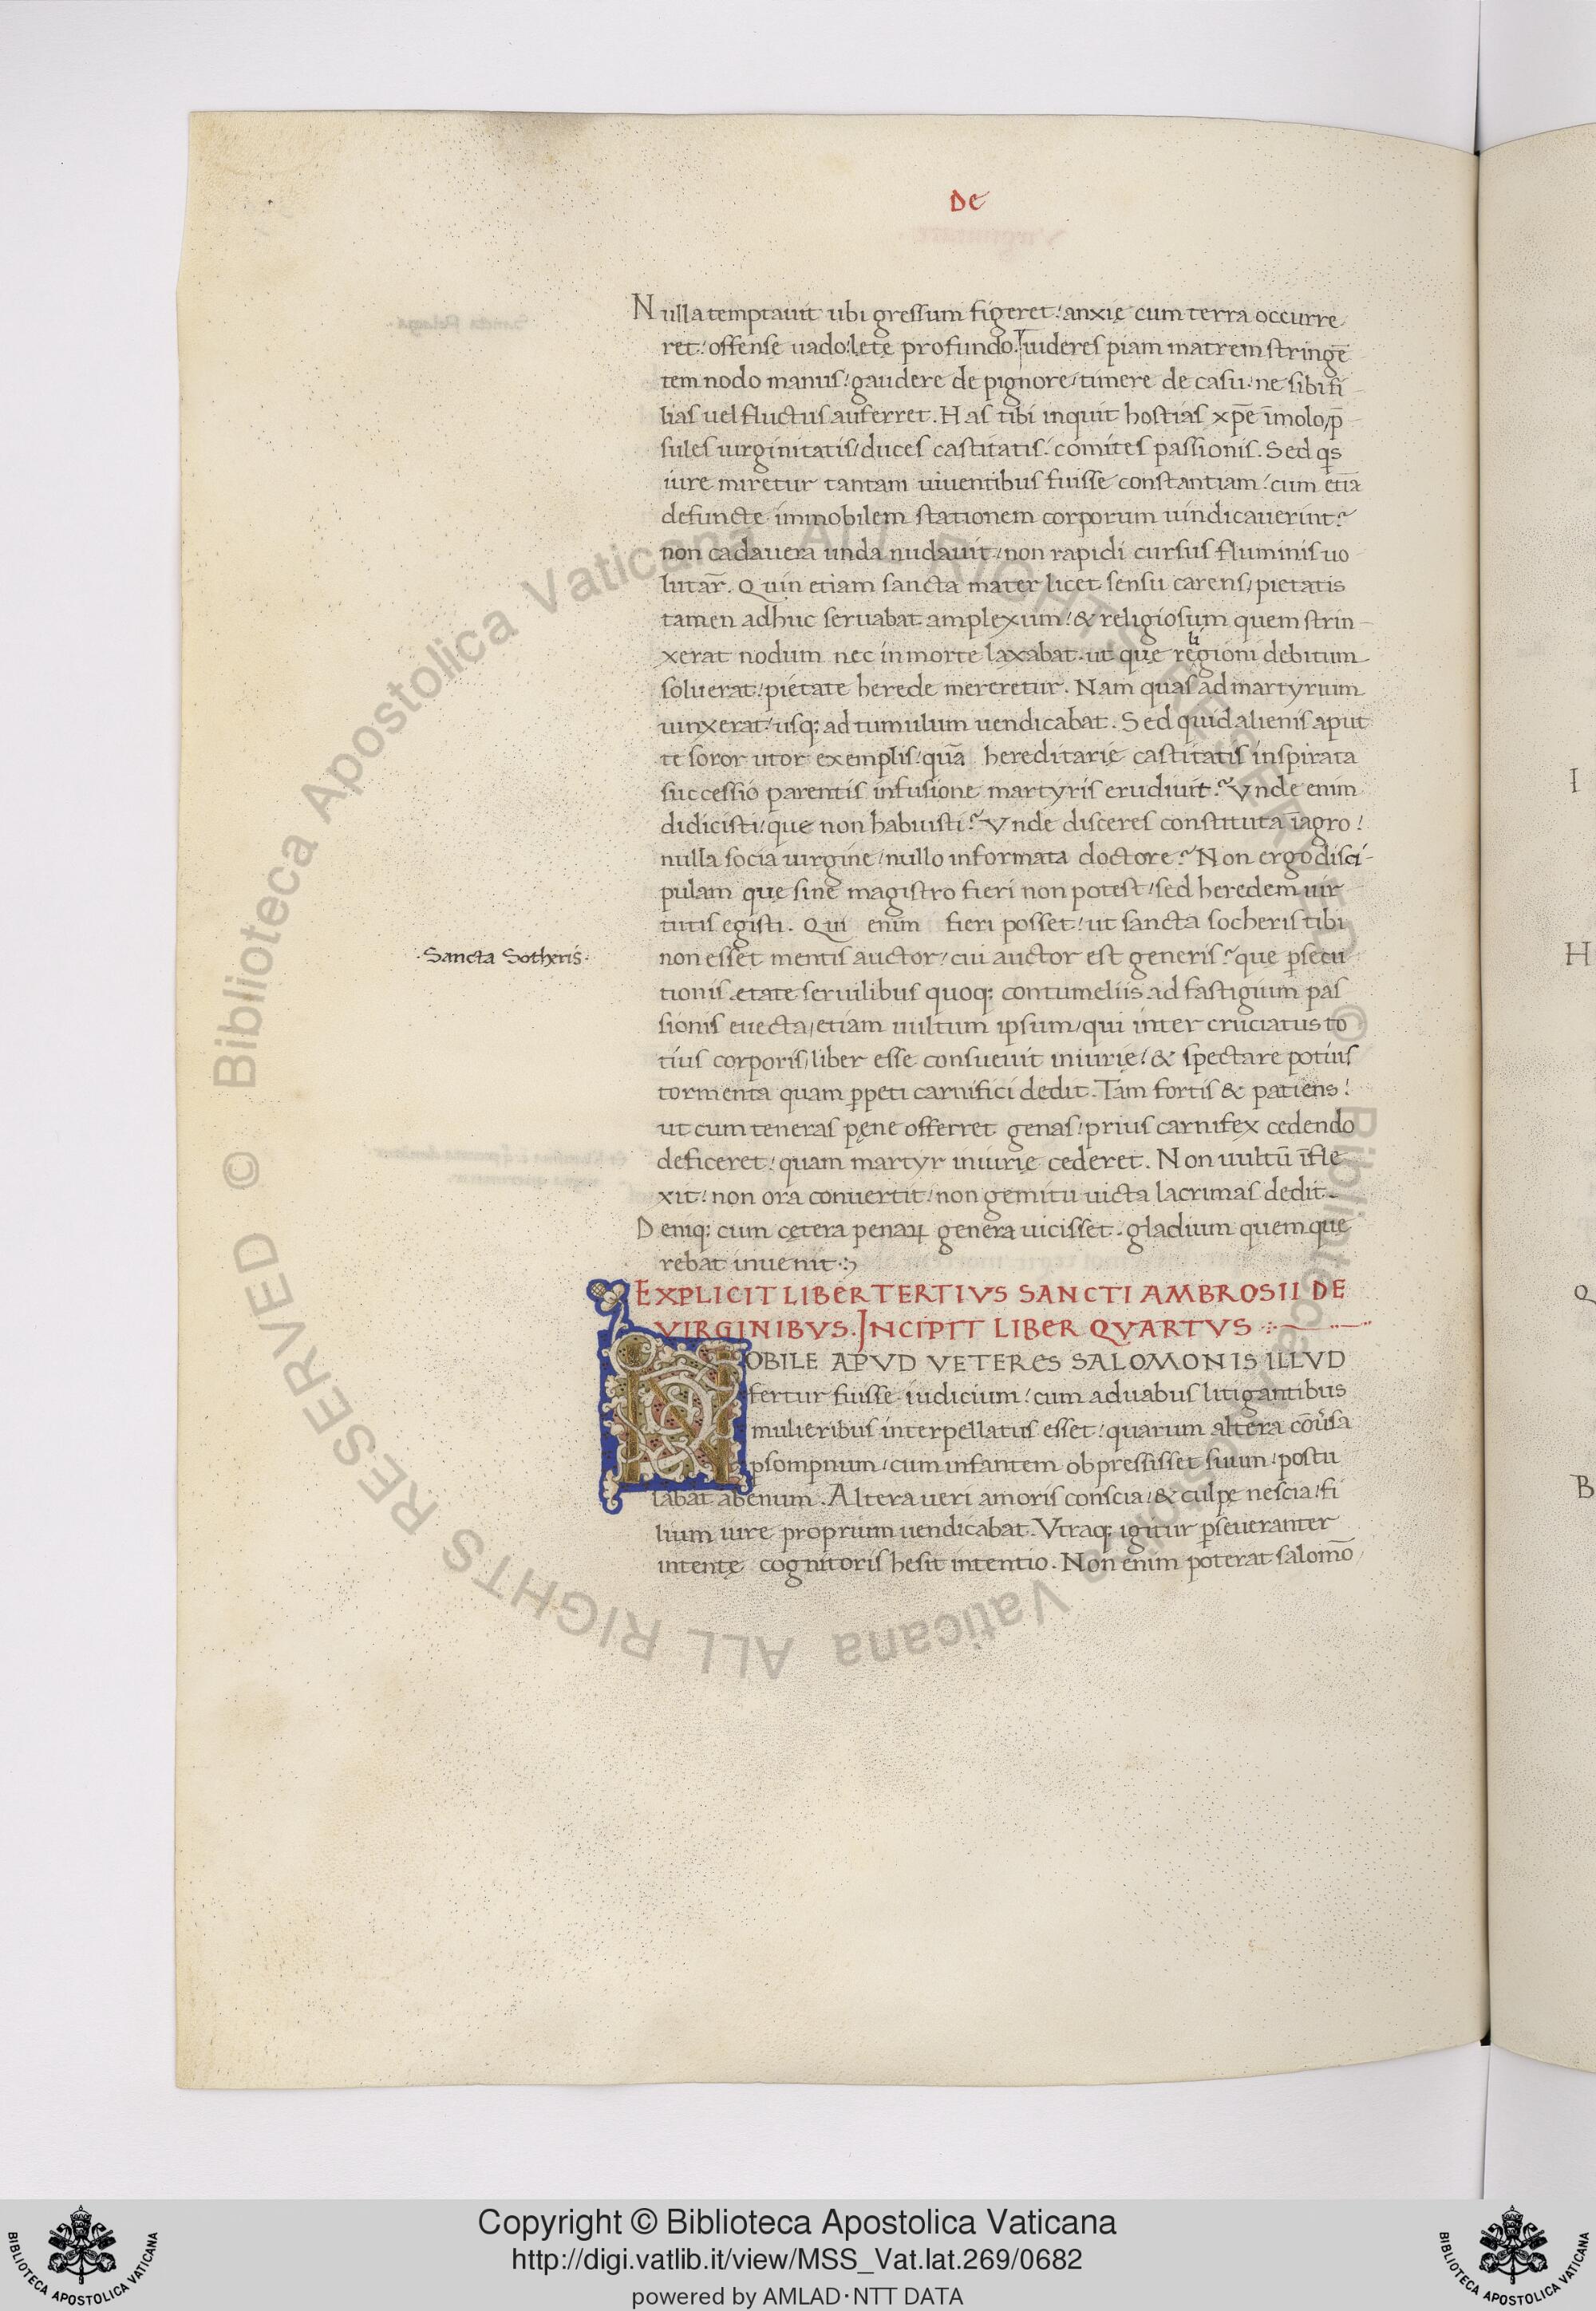 De
Nulla temptauit ubi gressum figeret: anxię cum terra occurre
ret: offense uado: lętę profundo. Videres piam matrem stringē
tem nodo manus: gaudere de pignore: timere de casu: ne sibi fi
lias uel fluctus auferret. Has tibi inquit hostias xpē īmolo, p̄
sules uirginitatis, duces castitatis: comites passionis. Sed qs
iure miretur tantam uiuentibus fuisse constantiam: cum etiā
defuncte immobilem stationem corporum uindicauerint?
non cadauera unda nudauit, non rapidi cursus fluminis uo
lutar̄. Quin etiam sancta mater licet sensu carens, pietatis
tamen adhuc seruabat amplexum: & religiosum quem strin
xerat nodum nec in morte laxabat. ut que religioni debitum
soluerat: pietate herede mereretur. Nam quas ad martyrium
uinxerat: usq; ad tumulum uendicabat. Sed quid alienis aput
te soror utor exemplis: quā hereditarię castitatis inspirata
successio parentis infusione martyris erudiuit? Vnde enim
didicisti: que non habuisti? Vnde disceres constituta ī agro:
nulla socia uirgine, nullo informata doctore? Non ergo disci-
pulam que sine magistro fieri non potest: sed heredem uir
tutis egisti. Qui enim fieri posset: ut sancta socheris tibi
·Sancta Sotheris·
non esset mentis auctor: cui auctor est generis? quę psecu
tionis etate seruilibus quoq; contumeliis ad fastigium pas
sionis euecta, etiam uultum ipsum, qui inter cruciatus to
tius corporis, liber esse consueuit iniurie: & spectare potius
tormenta quam ppeti carnifici dedit. Tam fortis & patiens:
ut cum teneras pęne offerret genas: prius carnifex cedendo
deficeret: quam martyr iniurię cederet. Non uultū īfle
xit: non ora conuertit: non gemitu uicta lacrimas dedit.
Deniq; cum cętera penaꝝ genera uicisset. gladium quem que
rebat inuenit.
EXPLICIT LIBER TERTIVS SANCTI AMBROSII DE
VIRGINIBVS. INCIPIT LIBER QVARTVS
NOBILE APVD VETERES SALOMONIS ILLVD
fertur fuisse iudicium: cum a duabus litigantibus
mulieribus interpellatus esset: quarum altera cōusa
p sompnum, cum infantem obpressisset suum, postu
labat abenum. Altera ueri amoris conscia, & culpę nescia: fi
lium iure proprium uendicabat. Vtraq; igitur pseueranter
intentę cognitoris hesit intentio. Non enim poterat salomō
I
H
Q
B
© Biblioteca Apostolica Vaticana ALL RIGHTS RESERVED © Biblioteca Apostolica Vaticana ALL RIGHTS RESERVED
Copyright © Biblioteca Apostolica Vaticana
http://digi.vatlib.it/view/MSS_Vat.lat.269/0682
powered by AMLAD·NTT DATA
BIBLIOTECA APOSTOLICA VATICANA
BIBLIOTECA APOSTOLICA VATICANA